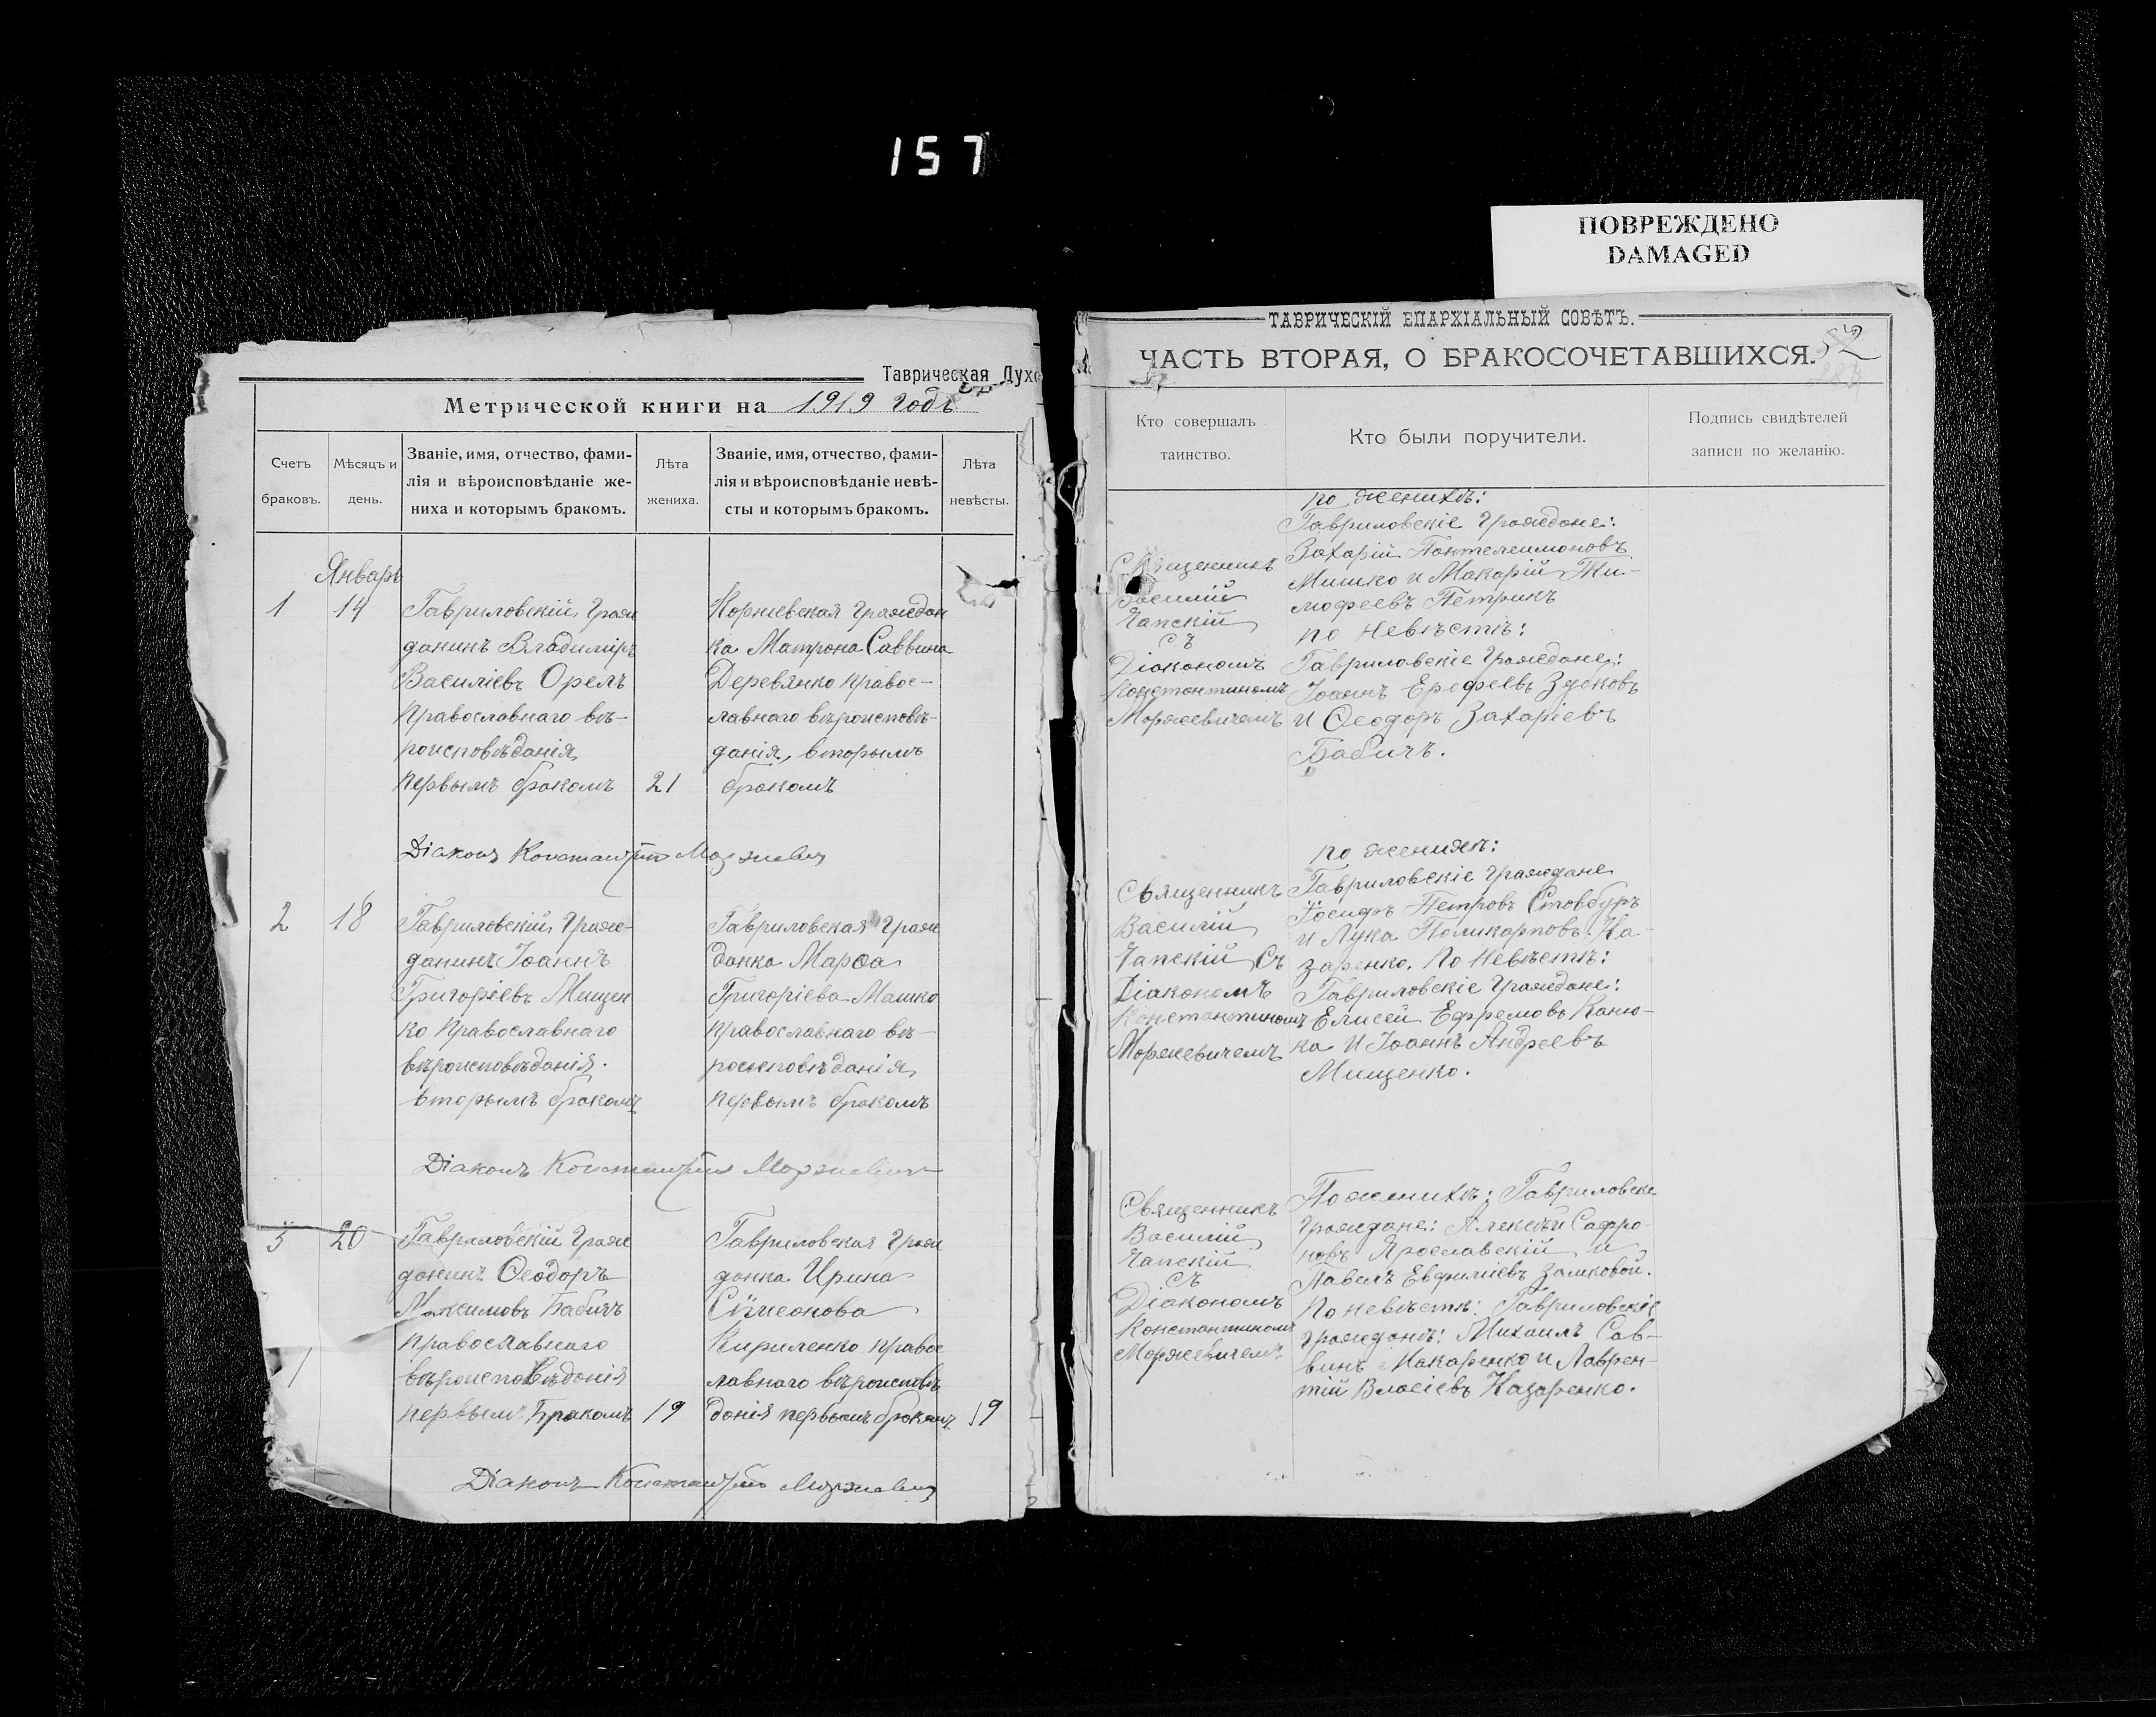 157
ПОВРЕЖДЕНО
DAMAGED
Таврическая Духо
Метрической книги на 1919 годъ
Счетъ браковъ.
Мѣсяцъ и день.
Званіе, имя, отчество, фами-
лія и вѣроисповѣданіе же-
ниха и которымъ бракомъ.
Лѣта жениха.
Званіе, имя, отчество, фами-
лія и вѣроисповѣданіе невѣ-
сты и которымъ бракомъ.
Лѣта невѣсты.
Январь
1
14
Гавриловскій граж
данинъ Владиміръ
Василіевъ Орелъ
православнаго вѣ-
роисповѣданія
первымъ бракомъ
21
граждан
ка Матрона Саввина
Деревянко правос-
лавнаго вѣроисповѣ-
данія, вторымъ
бракомъ
Діаконъ Константинъ Моржевичъ
2
18
Гавриловскій граж-
данинъ Іоаннъ
Григоріевъ Мищен
ко православнаго
вѣроисповѣданія.
вторымъ бракомъ
Гавриловская граж
данка Марѳа
Григоріева Машко
православнаго вѣ-
роисповѣданія
первымъ бракомъ
Діаконъ Константинъ Моржевичъ
3
20
Гавриловскій граж
данинъ Ѳеодоръ
Максимовъ Бабичъ
православнаго
вѣроисповѣданія
первымъ бракомъ
19
Гавриловская граж
данка Ирина
Сѵмеонова
Кириленко правос
лавнаго вѣроисповѣ
данія первымъ бракомъ
19
Діаконъ Константинъ Моржевичъ
ТАВРИЧЕСКІЙ ЕПАРХІАЛЬНЫЙ СОВѢТЪ.
ЧАСТЬ ВТОРАЯ, О БРАКОСОЧЕТАВШИХСЯ.
52
Кто совершалъ
таинство.
Кто были поручители.
Подпись свидѣтелей
записи по желанію.
Священникъ
Василій
Чапскій
съ
Діакономъ
Константиномъ
Моржевичемъ
по женихѣ:
Гавриловскіе граждане:
Захарій Пантелеимоновъ
Мишко и Макарій Ти-
мофеевъ Петрикъ
по невѣстѣ:
Гавриловскіе граждане:
Іоаннъ Ерофеевъ Зубковъ
и Ѳеодоръ Захаріевъ
Бабичъ.
Священникъ
Василій
Чапскій съ
Діакономъ
Константиномъ
Моржевичемъ
по женихѣ:
Гавриловскіе граждане
Іосифъ Петровъ Стовбуръ
и Лука Поликарповъ На-
заренко. По невѣстѣ:
Гавриловскіе граждане:
Елисей Ефремовъ Каню-
ка и Іоаннъ Андреевъ
Мищенко.
Священникъ
Василій
Чапскій
съ
Діакономъ
Константиномъ
Моржевичемъ
По женихѣ: Гавриловскіе
граждане: Алексѣй Сафро-
новъ Ярославскій и
Павелъ Евфиміевъ Замковой.
По невѣстѣ: Гавриловскіе
граждане: Михаилъ Сав-
винъ Макаренко и Лаврен-
тій Власіевъ Назаренко.